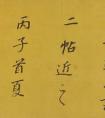 二帖近之
丙子首夏